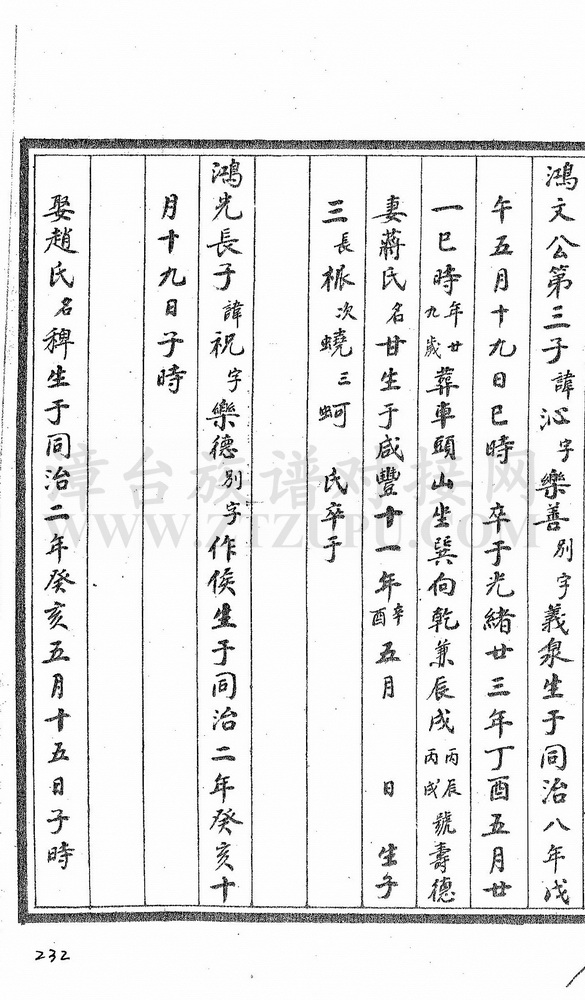 鴻文公第三子諱沁字樂善別字義泉生于同治八年戊
午五月十九日巳時 卒于光緒廿三年丁酉五月廿
一巳時年廿九歲葬車頭山坐巽向乾兼辰戌丙辰丙戌號壽德
妻蔣氏名甘生于咸豐十一年辛酉五月 日 生子
三長桭次蟯三蚵 氏卒于
鴻光長子諱祝字樂德別字作侯生于同治二年癸亥十
月十九日子時
娶趙氏名稗生于同治二年癸亥五月十五日子時
漳台族谱对接网
WWW.ZTZUPU.COM
232